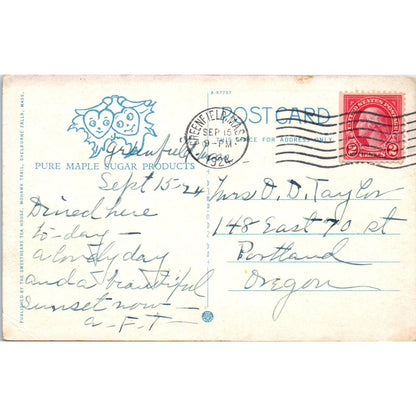 A-67757
POST CARD
THIS SPACE FOR ADDRESS ONLY
GREENFIELD, MASS.
SEP 15
9-PM
1924
UNITED STATES POSTAGE
2 CENTS 2
PURE MAPLE SUGAR PRODUCTS
PUBLISHED BY THE SWEETHEART TEA HOUSE, MOHAWK TRAIL, SHELBURNE FALLS, MASS.
Greenfield
Mass
Sept 15-24
Dined here
to-day-
a lovely day
and a beautiful
sunset now-
a-F.T-
Mrs O. D. Taylor
148 East 70 st
Portland
Oregon